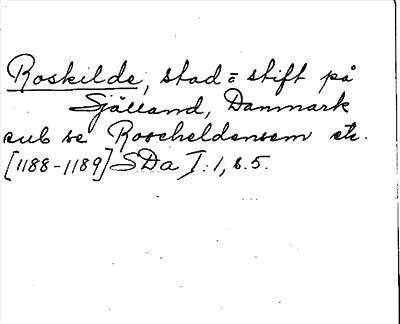 Roskilde, stad = stift på
Själland, Danmark
sub se Roscheldensem etc.
[1188-1189] SDa I:1, s.5.